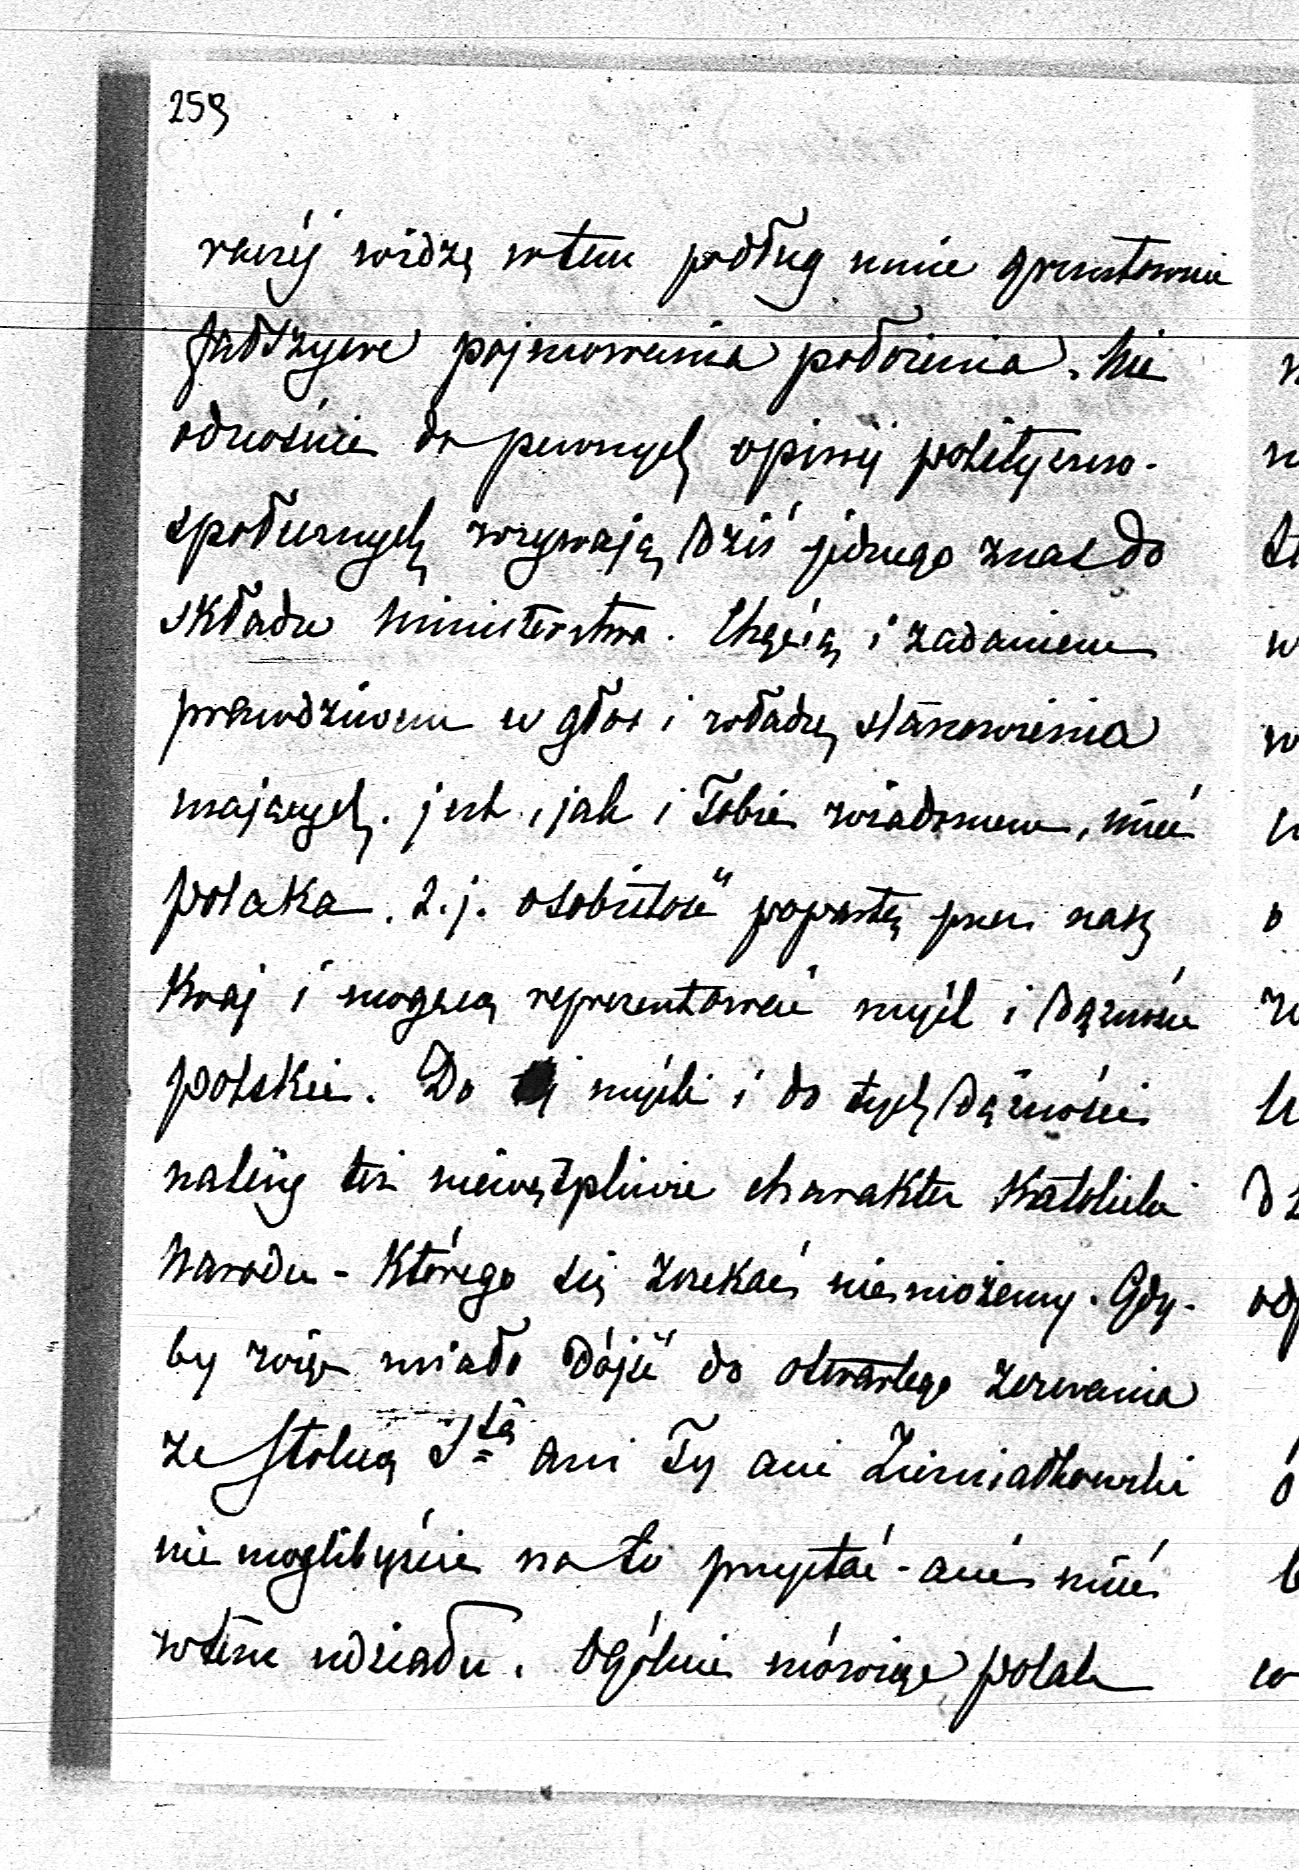 259
raczéj widzę w tem podług mnie gruntownie
fałszywe pojmowania położenia. Nie
odnośnie do pewnych opinij polityczno-
społecznych wzywają dziś jednego z nas do
składu Ministerstwa. Chęcią i zadaniem
prawdziwem w głos i władzę stanowienia
mających. jest, jak i Tobie wiadomem, mieć
polaka. t.j. osobistość popartą przez nasz
Kraj i mogącą reprezentować myśl i dążność
polskie. Do tej myśli i do tych dążności
należy też niewątpliwie charakter Katolicki
Narodu - którego się zrzekać nie możemy. Gdy-
by więc miało dójść do otwartego zerwania
ze Stolicą Stą ani Ty ani Ziemiałkowski
nie moglibyście na to przystać - ani mieć
w tém udziału. Ogólnie mówiąc polak